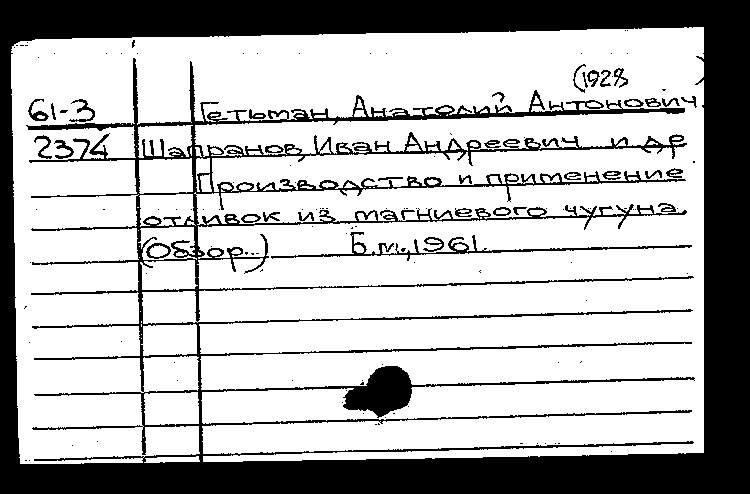 (1928 )
61-3 Гетьман, Анатолий Антонович.
2374 Шапранов, Иван Андреевич и др
Производство и применение
отливок из магниевого чугуна.
(Обзор..) Б.м., 1961.